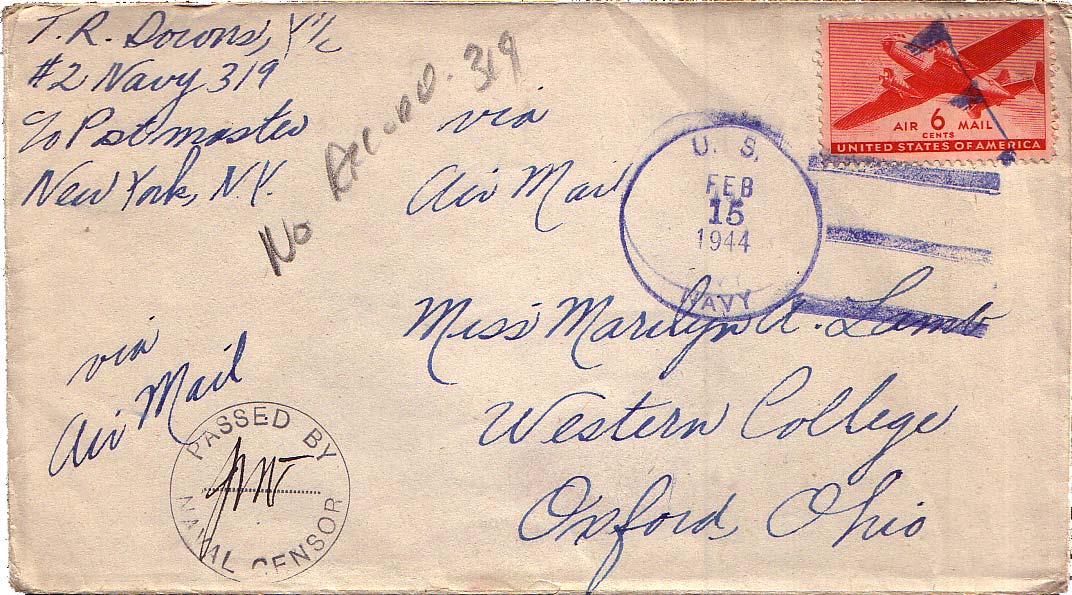 T. R. Downs, Y1/c
#2 Navy 319
c/o Postmaster
New York, N.Y.
No Record. 319
via
Air Mail
U. S.
FEB
15
1944
NAVY
AIR 6 MAIL
CENTS
UNITED STATES OF AMERICA
Miss Marilyn A. Lamb
Western College
Oxford, Ohio
via
Air Mail
PASSED BY
NAVAL CENSOR